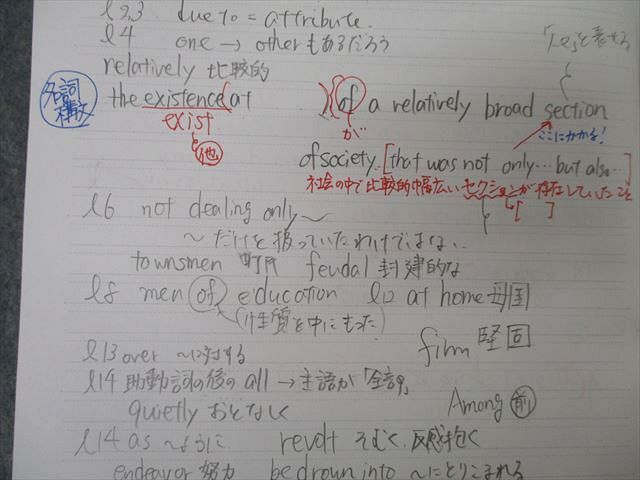 l2,3 due to = attribute.
l4 one → otherもあるだろう
relatively 比較的
名詞構文
the existence (at ) {of a relatively broad section
exist
が
ここにかかる!
他
of society. [that was not only … but also …]
社会の中で比較的幅広いセクションが存在していたこと
[ ]
l6 not dealing only ～
～だけを扱っていたわけではない..
townsmen 町民 feudal 封建的な
l8 men of education l12 at home 母国
(性質を中にもった)
l13 over ～に対する firm 堅固
l14 助動詞の後の all → 主語が「全部」
quietly おとなしく Among 前
l14 as ～ように revolt そむく、反感抱く
endeavor 努力 be drown into ～にとりこまれる